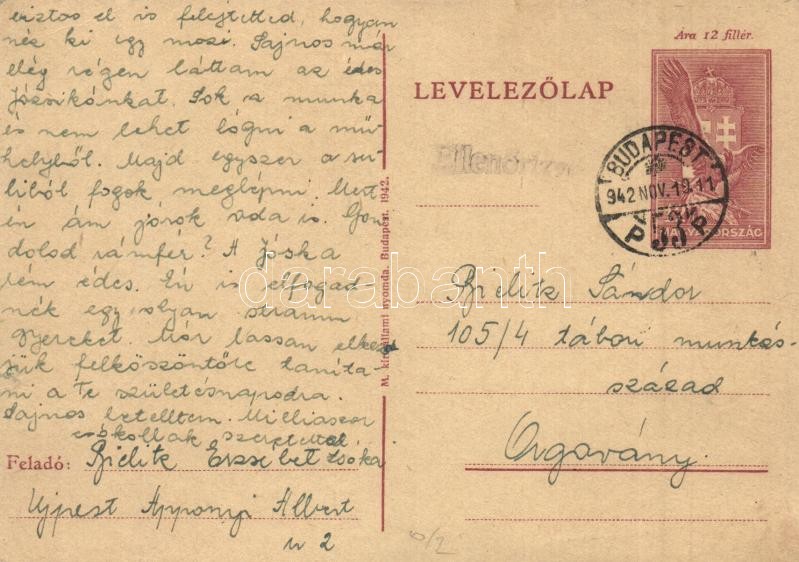 biztos el is felejtetted, hogyan
néz ki egy mozi. Sajnos már
elég régen láttam az édes
Józsikónkat. Sok a munka
és nem lehet lógni a mű-
helyből. Majd egyszer a su-
liból fogok meglépni. Mert
én ám járok oda is. Gon
dolod rámfér? A Jóska
rém édes. Én is elfogad-
nék egy olyan stramm
gyereket. Már lassan elkezd
jük felköszöntőt tanita-
ni a Te születésnapodra.
Sajnos betelltem. Milliószor
csókollak szeretettel
Feladó: Bielik Erzsébet
Ujpest Apponyi Albert
u 2
M. kir. állami nyomda. Budapest. 1942.
Ára 12 fillér.
LEVELEZŐLAP
BUDAPEST
942 NOV. 19. 11
MAGYARORSZÁG
Bielik Sándor
105/4 tábori munkás-
század
Ágasvány.
darabanth